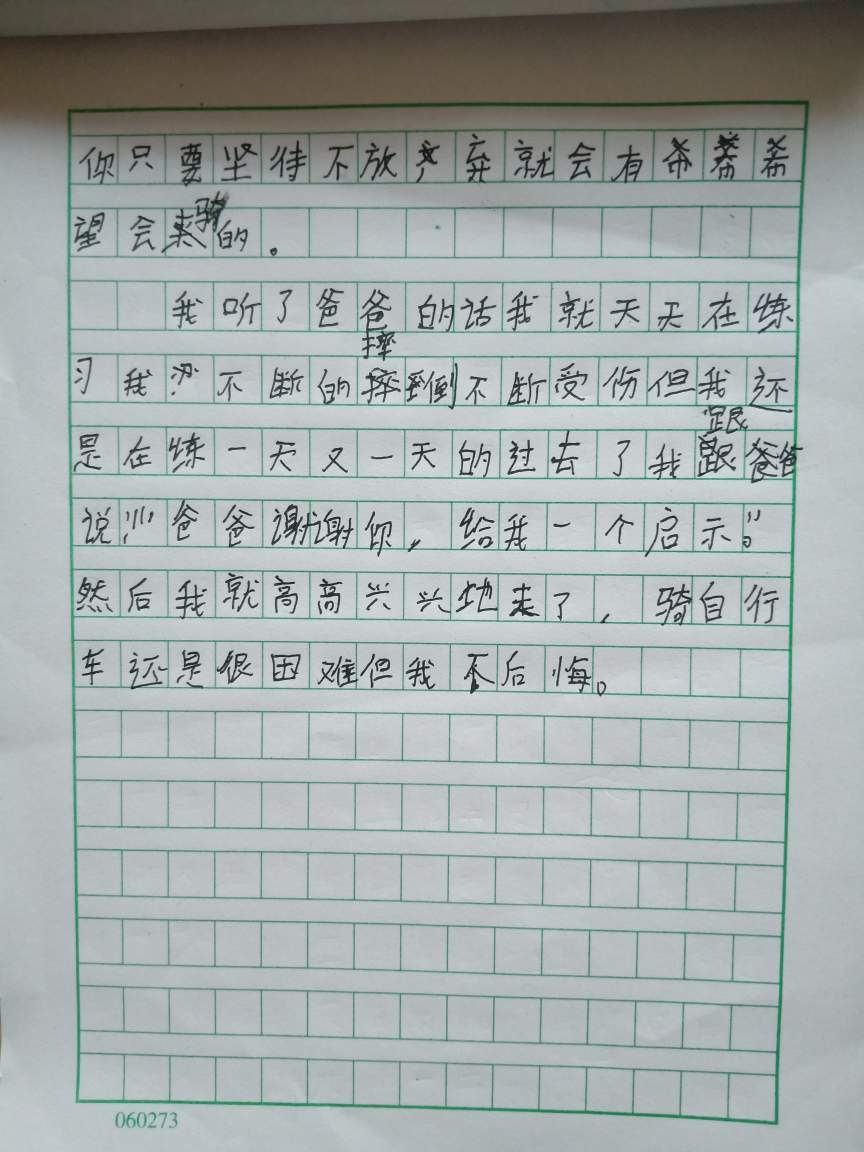 你只要坚待不放弃就会有希望
会骑的。
我听了爸爸的话我就天天在练
习我不断的摔倒不断受伤但我还
是在练一天又一天的过去了我跟爸爸
说“爸爸谢谢你，给我一个启示。”
然后我就高高兴兴地走了，骑自行
车还是很困难但我不后悔。
060273